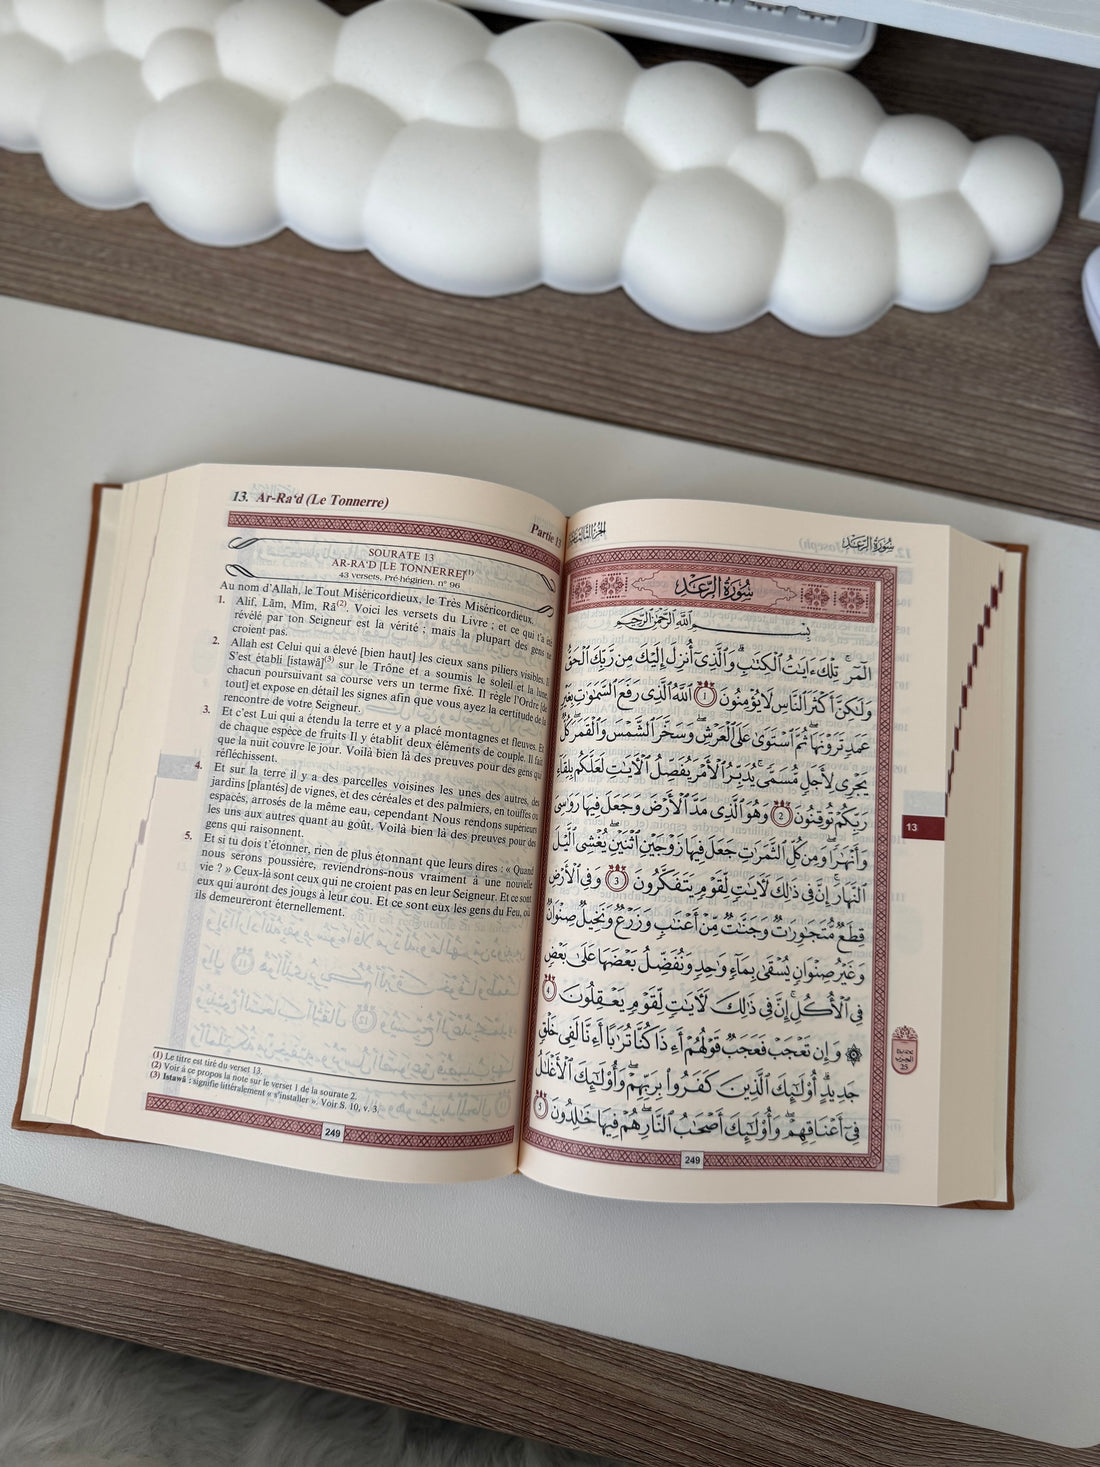 13. Ar-Ra'd (Le Tonnerre)
Partie 13
SOURATE 13
AR-RA'D [LE TONNERRE](1)
43 versets. Pré-hégirien. n° 96
Au nom d'Allah, le Tout Miséricordieux, le Très Miséricordieux.
1. Alif, Lām, Mīm, Rā(2). Voici les versets du Livre ; et ce qui t'a été
révélé par ton Seigneur est la vérité ; mais la plupart des gens ne
croient pas.
2. Allah est Celui qui a élevé [bien haut] les cieux sans piliers visibles. Il
S'est établi [istawā](3) sur le Trône et a soumis le soleil et la lune,
chacun poursuivant sa course vers un terme fixé. Il règle l'Ordre [de
tout] et expose en détail les signes afin que vous ayez la certitude de la
rencontre de votre Seigneur.
3. Et c'est Lui qui a étendu la terre et y a placé montagnes et fleuves. Et
de chaque espèce de fruits Il y établit deux éléments de couple. Il fait
que la nuit couvre le jour. Voilà bien là des preuves pour des gens qui
réfléchissent.
4. Et sur la terre il y a des parcelles voisines les unes des autres, des
jardins [plantés] de vignes, et des céréales et des palmiers, en touffes ou
espacés, arrosés de la même eau, cependant Nous rendons supérieurs
les uns aux autres quant au goût. Voilà bien là des preuves pour des
gens qui raisonnent.
5. Et si tu dois t'étonner, rien de plus étonnant que leurs dires : « Quand
nous serons poussière, reviendrons-nous vraiment à une nouvelle
vie ? » Ceux-là sont ceux qui ne croient pas en leur Seigneur. Et ce sont
eux qui auront des jougs à leur cou. Et ce sont eux les gens du Feu, où
ils demeureront éternellement.
(1) Le titre est tiré du verset 13.
(2) Voir à ce propos la note sur le verset 1 de la sourate 2.
(3) Istawā : signifie littéralement « s'installer ». Voir S. 10, v. 3.
249
سُورَةُ الرَّعْدِ
سُورَةُ الرَّعْدِ
بِسْمِ ٱللَّهِ ٱلرَّحْمَٰنِ ٱلرَّحِيمِ
الٓمٓر ۚ تِلْكَ ءَايَٰتُ ٱلْكِتَٰبِ ۗ وَٱلَّذِىٓ أُنزِلَ إِلَيْكَ مِن رَّبِّكَ ٱلْحَقُّ
وَلَٰكِنَّ أَكْثَرَ ٱلنَّاسِ لَا يُؤْمِنُونَ ١ ٱللَّهُ ٱلَّذِى رَفَعَ ٱلسَّمَٰوَٰتِ بِغَيْرِ
عَمَدٍ تَرَوْنَهَا ۖ ثُمَّ ٱسْتَوَىٰ عَلَى ٱلْعَرْشِ ۖ وَسَخَّرَ ٱلشَّمْسَ وَٱلْقَمَرَ ۖ كُلٌّ
يَجْرِى لِأَجَلٍ مُّسَمًّى ۚ يُدَبِّرُ ٱلْأَمْرَ يُفَصِّلُ ٱلْءَايَٰتِ لَعَلَّكُم بِلِقَآءِ
رَبِّكُمْ تُوقِنُونَ ٢ وَهُوَ ٱلَّذِى مَدَّ ٱلْأَرْضَ وَجَعَلَ فِيهَا رَوَٰسِىَ
وَأَنْهَٰرًا ۖ وَمِن كُلِّ ٱلثَّمَرَٰتِ جَعَلَ فِيهَا زَوْجَيْنِ ٱثْنَيْنِ ۖ يُغْشِى ٱلَّيْلَ
ٱلنَّهَارَ ۚ إِنَّ فِى ذَٰلِكَ لَءَايَٰتٍ لِّقَوْمٍ يَتَفَكَّرُونَ ٣ وَفِى ٱلْأَرْضِ
قِطَعٌ مُّتَجَٰوِرَٰتٌ وَجَنَّٰتٌ مِّنْ أَعْنَٰبٍ وَزَرْعٌ وَنَخِيلٌ صِنْوَانٌ
وَغَيْرُ صِنْوَانٍ يُسْقَىٰ بِمَآءٍ وَٰحِدٍ وَنُفَضِّلُ بَعْضَهَا عَلَىٰ بَعْضٍ
فِى ٱلْأُكُلِ ۚ إِنَّ فِى ذَٰلِكَ لَءَايَٰتٍ لِّقَوْمٍ يَعْقِلُونَ ٤
۞ وَإِن تَعْجَبْ فَعَجَبٌ قَوْلُهُمْ أَءِذَا كُنَّا تُرَٰبًا أَءِنَّا لَفِى خَلْقٍ
جَدِيدٍ ۗ أُو۟لَٰٓئِكَ ٱلَّذِينَ كَفَرُوا۟ بِرَبِّهِمْ ۖ وَأُو۟لَٰٓئِكَ ٱلْأَغْلَٰلُ
فِىٓ أَعْنَاقِهِمْ ۖ وَأُو۟لَٰٓئِكَ أَصْحَٰبُ ٱلنَّارِ ۖ هُمْ فِيهَا خَٰلِدُونَ ٥
13
249